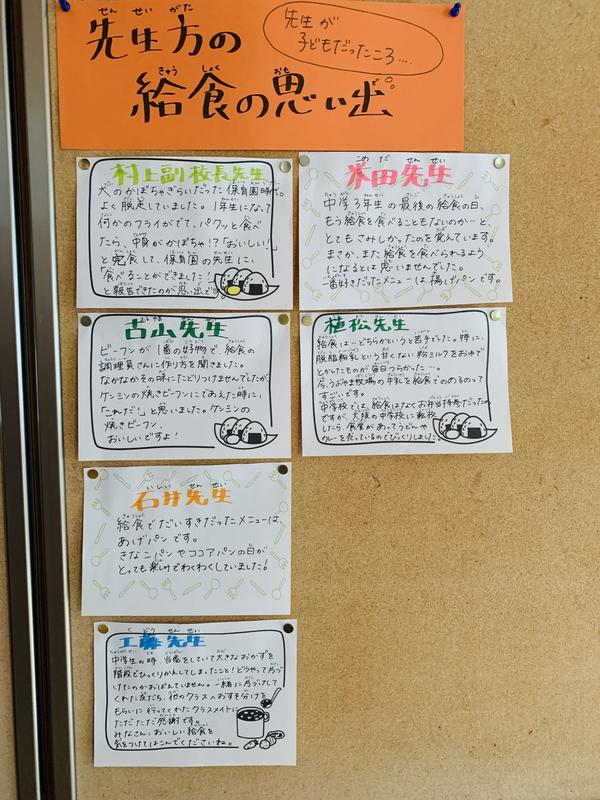 先生方の
先生が
子どもだったころ....
給食の思い出
村上副校長先生
大のかぼちゃぎらいだった保育園時代。
よく脱走していました。1年生になって
何かのフライがでて、パクッと食べ
たら、中身がかぼちゃ!?「おいしい!」
と完食して、保育園の先生に、
「食べることができました!」
と報告できたのが思い出です。
米田先生
中学3年生の最後の給食の日、
もう給食を食べることもないのかーと、
とてもさみしかったのを覚えています。
まさか、また給食を食べられるよう
になるとは思いませんでした。
一番好きだったメニューは揚げパンです。
古山先生
ビーフンが1番の好物で、給食の
調理員さんに作り方を聞きました。
なかなかその味にたどりつけませんでしたが、
ケンミンの焼きビーフンにであえた時に、
「これだ!」と思いました。ケンミンの
焼きビーフン、
おいしいですよ!
植松先生
給食は…どちらかというと苦手でした。特に、
脱脂粉乳という甘くない粉ミルクをおゆで
とかしたものが毎日つらかった…。
今、うぶやま牧場の牛乳を給食でのめるのって
すごいです。
中学校では、給食はなくお弁当持参だったの
ですが、大阪の中学校に転校
したら、食堂があってうどんや
カレーを売っているのでびっくりしました。
石井先生
給食でだいすきだったメニューは
あげパンです。
きなこパンやココアパンの日が
とっても楽しみでわくわくしていました!
工藤先生
中学生の時、当番をしていて大きなおかずを
階段でひっくりかえしてしまったこと!どうやって片づ
けたのかおぼえていません。一緒に片づけして
くれた友だち、他のクラスへおすそ分けを
もらいに行ってくれたクラスメイトに
ただただ感謝です。
みなさん、おいしい給食を
気をつけてはこんでくださいね。